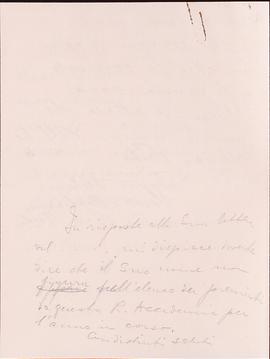 In risposta alla Sua lettera
del mi dispiace
dire che il Suo nome non
figura nell'elenco dei premiati
da questa R. Accademia per
l'anno in corso.
Con distinti saluti